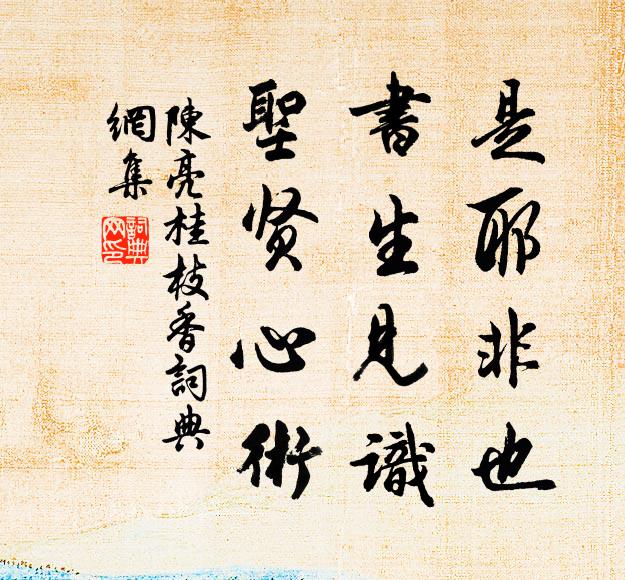 是耶非也
書生見識
聖贤心術
陳亮桂枝香詞典
網集
詞典
网印